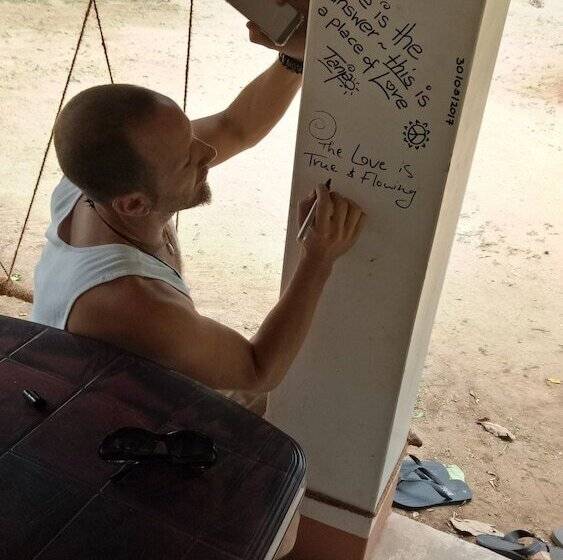 is the
answer ~ this is
a place of Love
30/09/2017
The Love is
True & Flowing